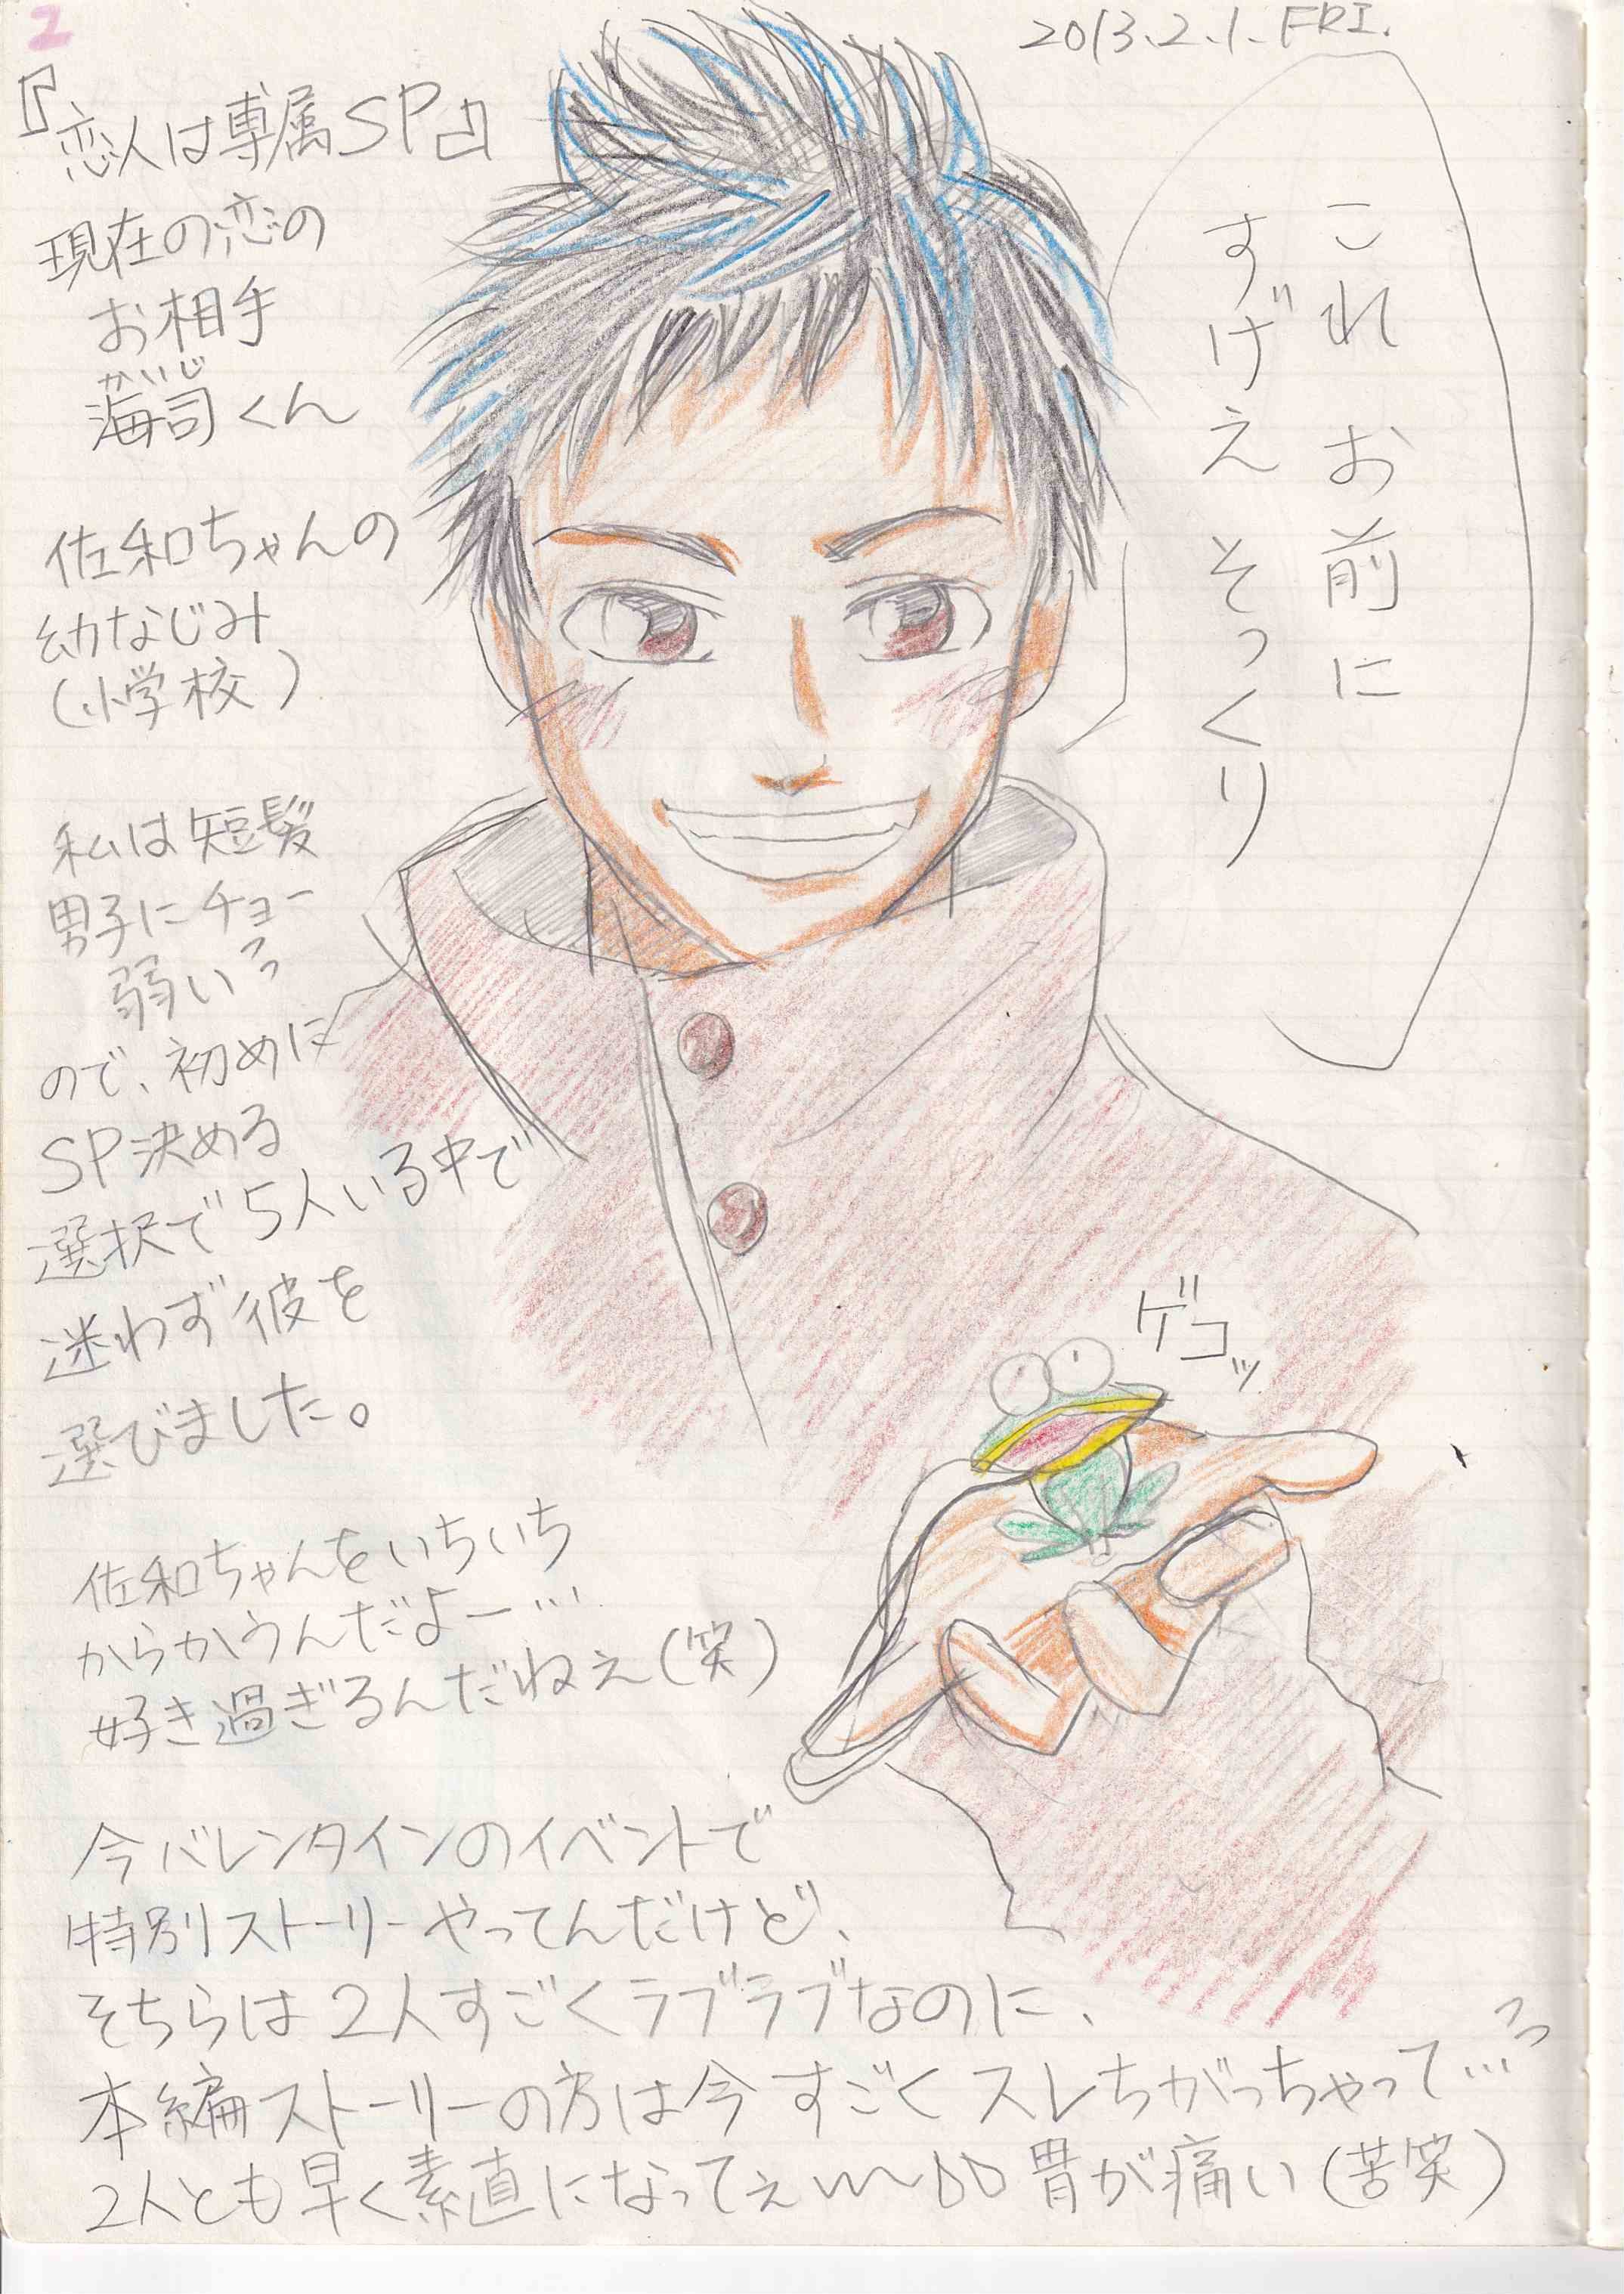 2
2013.2.1.FRI.
『恋人は専属SP』
現在の恋の
お相手
かいじ
海司くん
佐和ちゃんの
幼なじみ
(小学校)
私は短髪
男子にチョー
弱いっ
ので、初めに
SP決める
選択で5人いる中で
迷わず彼を
選びました。
これ お前に
すげえ そっくり
ゲコッ
佐和ちゃんをいちいち
からかうんだよー…
好き過ぎるんだねぇ(笑)
今バレンタインのイベントで
特別ストーリーやってんだけど、
そちらは2人すごくラブラブなのに、
本編ストーリーの方は今すごくスレちがっちゃって…っ
2人とも早く素直になってぇ〜 胃が痛い(苦笑)